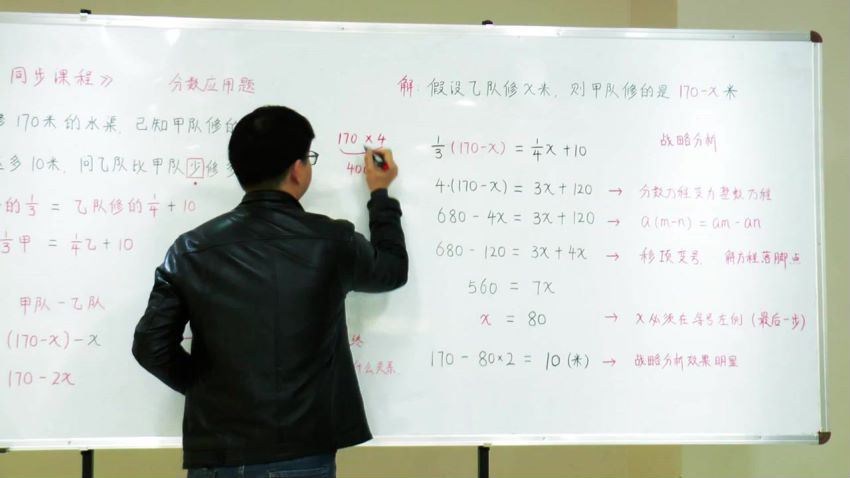 同步课程》 分数应用题
修170米的水渠,已知甲队修的
多10米,问乙队比甲队少修多
的1/3 = 乙队修的1/4 + 10
1/3甲 = 1/4乙 + 10
甲队-乙队
(170-x)-x
170-2x
什么关系
170 × 4
40
解:假设乙队修x米,则甲队修的是170-x米
1/3(170-x) = 1/4x + 10 战略分析
4·(170-x) = 3x + 120 → 分数方程变为整数方程
680 - 4x = 3x + 120 → a(m-n) = am - an
680 - 120 = 3x + 4x → 移项变号, 解方程落脚点
560 = 7x
x = 80 → x必须在等号左侧(最后一步)
170 - 80×2 = 10(米) → 战略分析效果明显